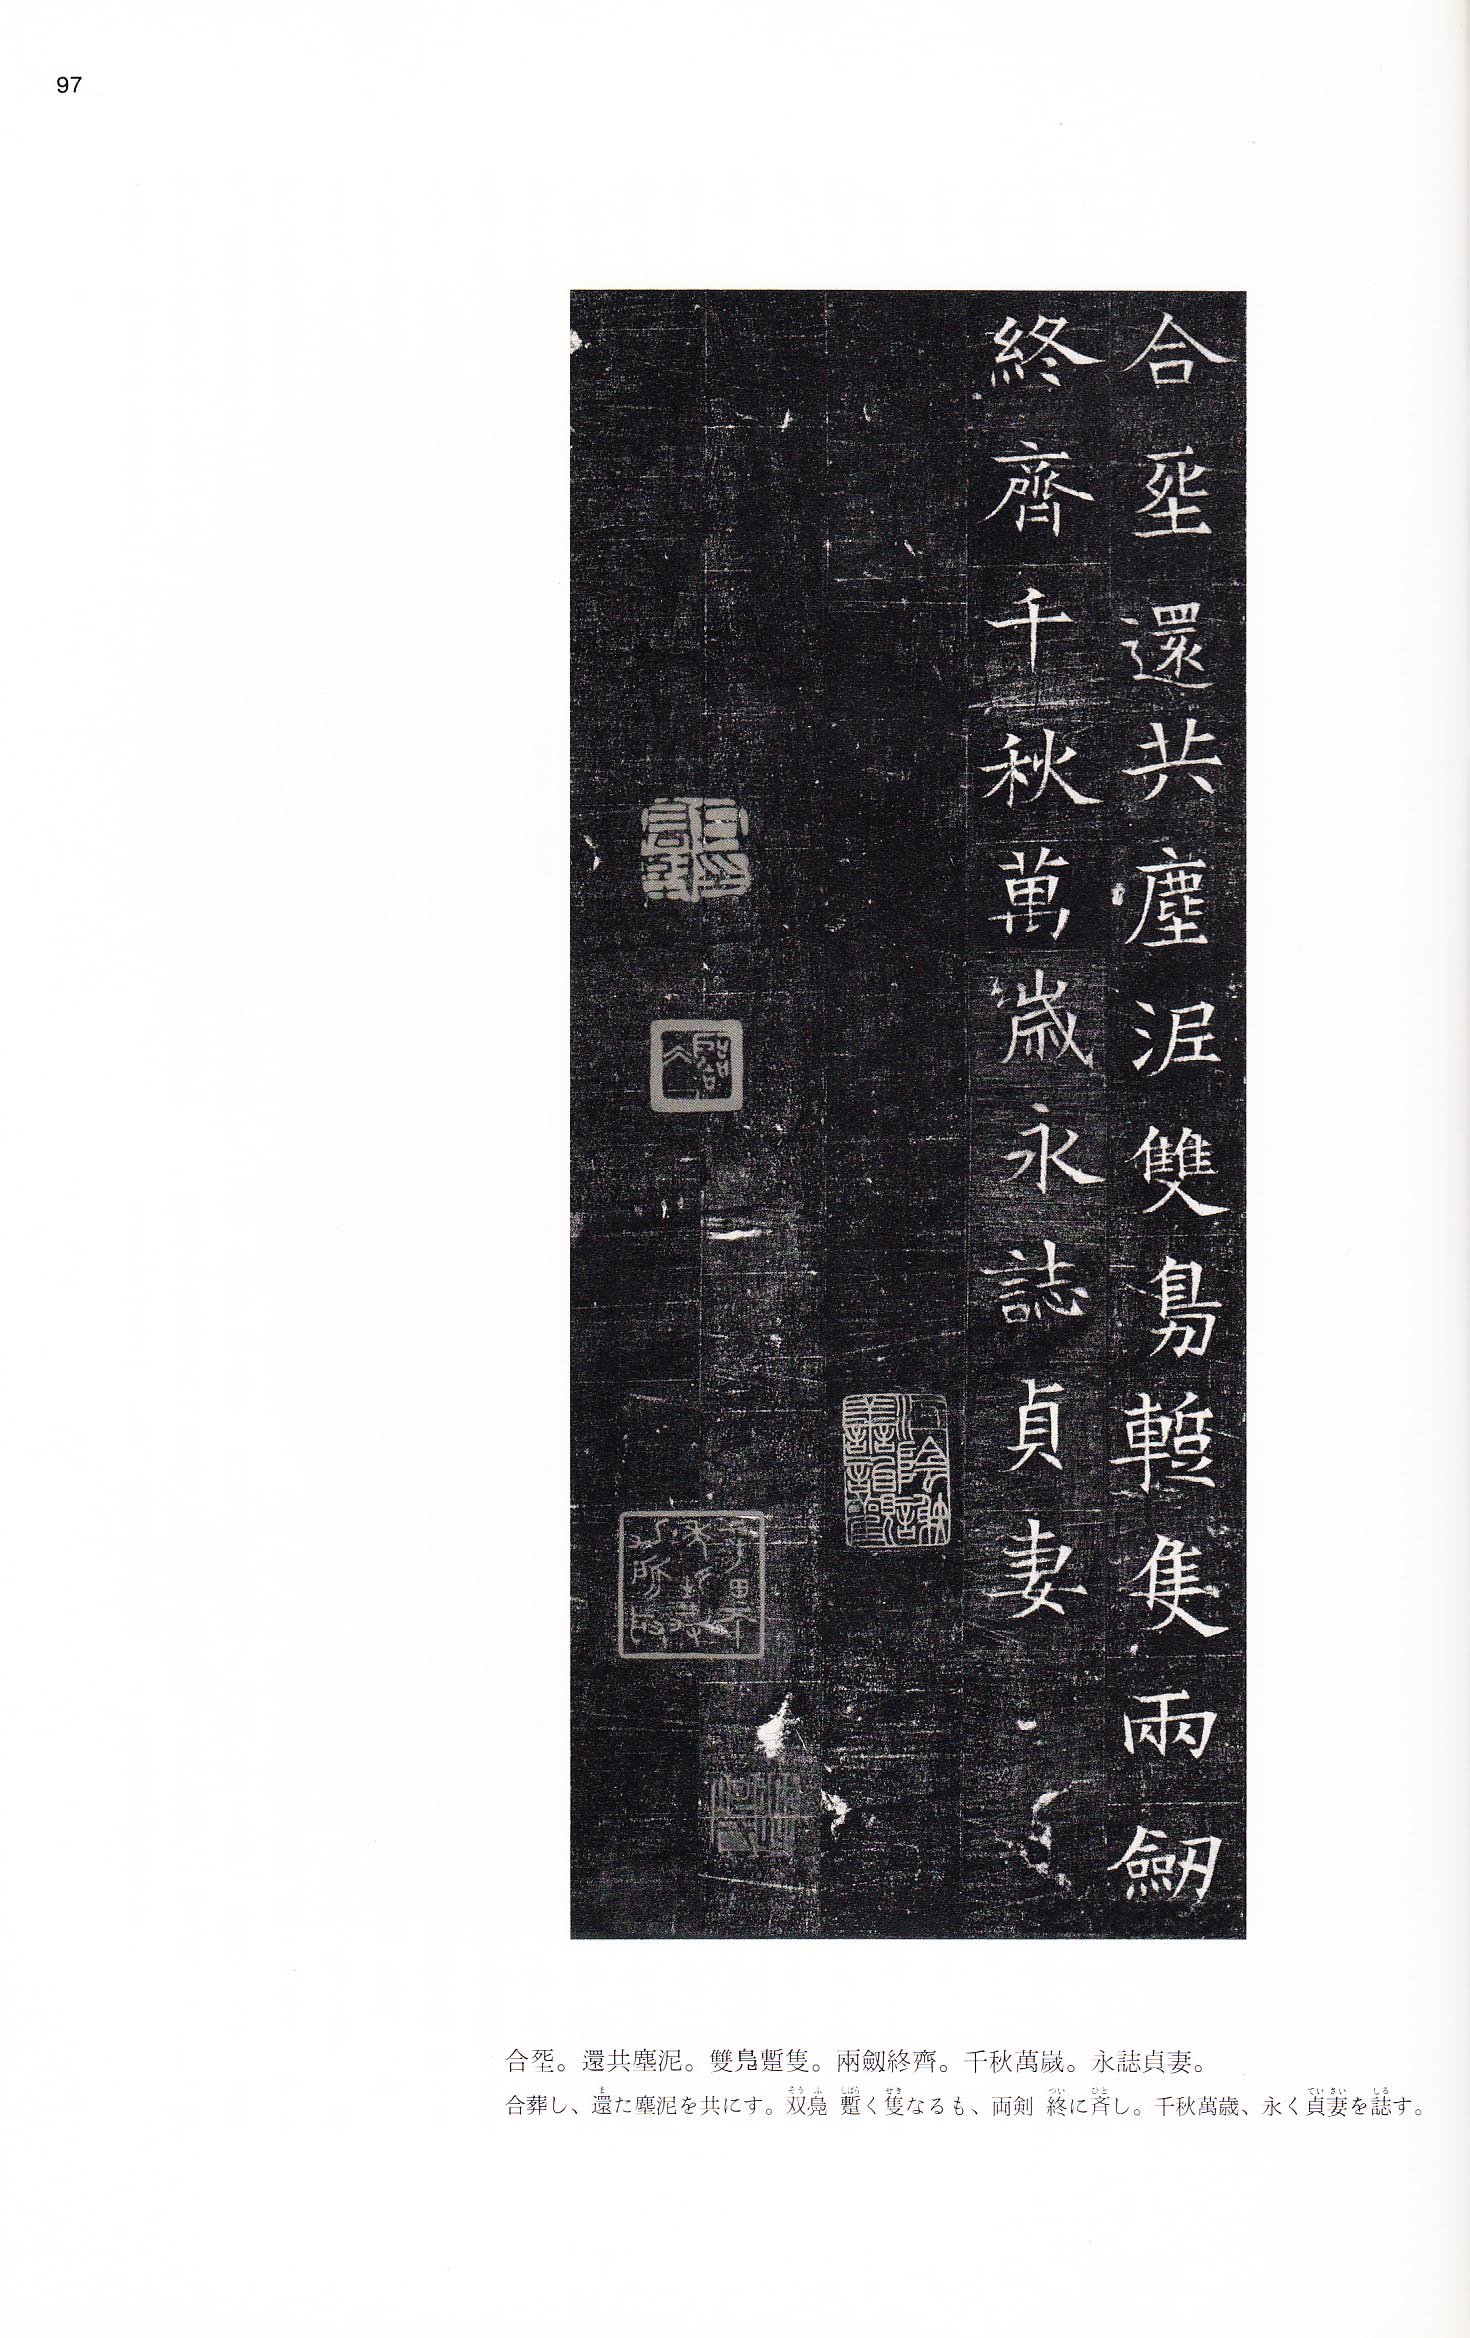 97
合㘸還共塵泥雙鳧蹔隻兩劒
終齊千秋萬歲永誌貞妻
合㘸。還共塵泥。雙鳧蹔隻。兩劒終齊。千秋萬歲。永誌貞妻。
合葬し、還た塵泥を共にす。双鳧 蹔く隻なるも、両剣 終に斉し。千秋萬歳、永く貞妻を誌す。